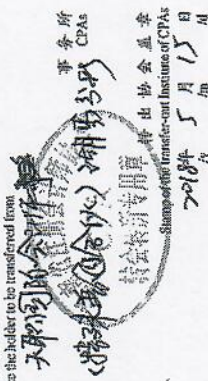 the holder to be transferred from
天职国际会计师事
(特殊普通合伙)湖南分所
事务所
CPAs
转出协会盖章
Stamp of the transfer-out Institute of CPAs
2018年 5月 15日
/y /m /d